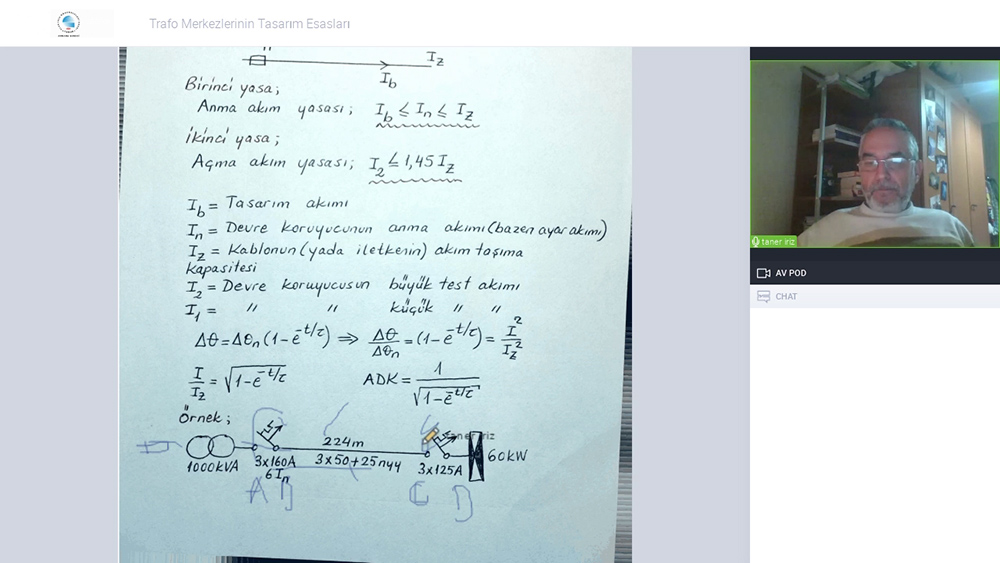 Trafo Merkezlerinin Tasarım Esasları
Iz
Ib
Birinci yasa;
Anma akım yasası; Ib ≤ In ≤ Iz
İkinci yasa;
Açma akım yasası; I2 ≤ 1,45 Iz
Ib = Tasarım akımı
In = Devre koruyucunun anma akımı (bazen ayar akımı)
Iz = Kablonun (yada iletkenin) akım taşıma
kapasitesi
I2 = Devre koruyucusun büyük test akımı
I1 = " " küçük " "
Δθ = Δθn (1-e^-t/τ) ⇒ Δθ/Δθn = (1-e^-t/τ) = I²/Iz²
I/Iz = √1-e^-t/τ ADK = 1/√1-e^-t/τ
Örnek;
1000kVA
3x160A
6In
224m
3x50+25nyy
taner iriz
3x125A
60kW
A B C D
taner iriz
AV POD
CHAT